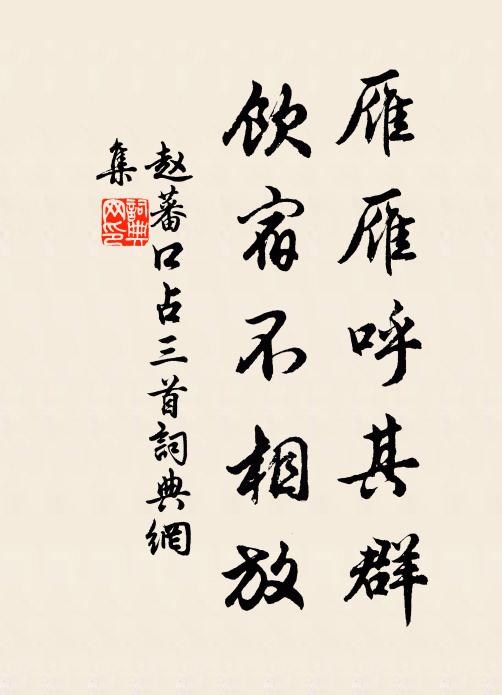 雁雁呼其群
飲宿不相放
赵蕃口占三首詞典網
集
詞典
网印